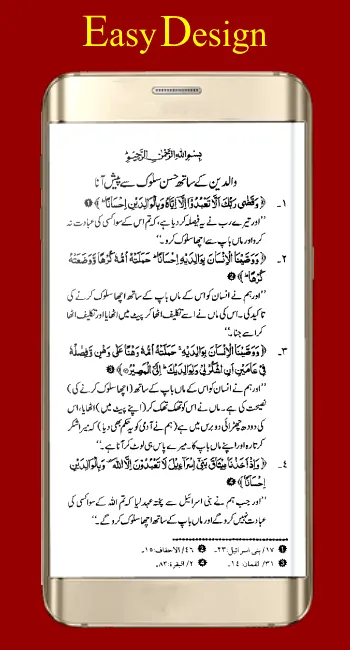 Easy Design
بِسْمِ اللهِ الرَّحْمٰنِ الرَّحِيْمِ
والدین کے ساتھ حسن سلوک سے پیش آنا
۱۔ ﴿ وَقَضٰى رَبُّكَ اَلَّا تَعْبُدُوْٓا اِلَّآ اِيَّاهُ وَبِالْوَالِدَيْنِ اِحْسَانًا ﴾ ❶
’’اور تیرے رب نے یہ فیصلہ کر دیا ہے، کہ تم اس کے سوا کسی کی عبادت نہ
کرو اور ماں باپ سے اچھا سلوک کرو۔‘‘
۲۔ ﴿ وَوَصَّيْنَا الْاِنْسَانَ بِوَالِدَيْهِ اِحْسَانًا حَمَلَتْهُ اُمُّهٗ كُرْهًا وَّوَضَعَتْهُ
كُرْهًا ﴾ ❷
’’اور ہم نے انسان کو اس کے ماں باپ کے ساتھ اچھا سلوک کرنے کی
تاکید کی۔ اس کی ماں نے اسے تکلیف اٹھا کر پیٹ میں اٹھایا اور تکلیف اٹھا
کر اسے جنا۔‘‘
۳۔ ﴿ وَوَصَّيْنَا الْاِنْسَانَ بِوَالِدَيْهِ حَمَلَتْهُ اُمُّهٗ وَهْنًا عَلٰى وَهْنٍ وَّفِصٰلُهٗ
فِيْ عَامَيْنِ اَنِ اشْكُرْ لِيْ وَلِوَالِدَيْكَ اِلَيَّ الْمَصِيْرُ ﴾ ❸
’’اور ہم نے انسان کو اس کے ماں باپ کے ساتھ (اچھا سلوک کرنے کی)
نصیحت کی ہے۔ ماں نے اس کو تھک تھک کر (اپنے پیٹ میں) اٹھایا، اس
کی دودھ چھڑائی دو برس میں ہے (ہم نے آدمی کو یہ حکم بھی دیا) کہ میرا شکر
کرتا رہ اور اپنے ماں باپ کا۔ میرے پاس ہی لوٹ کر آنا ہے۔‘‘
۴۔ ﴿ وَاِذْ اَخَذْنَا مِيْثَاقَ بَنِيْٓ اِسْرَآءِيْلَ لَا تَعْبُدُوْنَ اِلَّا اللهَ وَبِالْوَالِدَيْنِ
اِحْسَانًا ﴾ ❹
’’اور جب ہم نے بنی اسرائیل سے پختہ عہد لیا کہ تم اللہ کے سوا کسی کی
عبادت نہیں کرو گے اور ماں باپ کے ساتھ اچھا سلوک کرو گے۔‘‘
❶ ۱۷/ بنی اسرائیل: ۲۳۔ ❷ ۴۶/ الاحقاف: ۱۵۔
❸ ۳۱/ لقمان: ۱۴۔ ❹ ۲/ البقرۃ: ۸۳۔